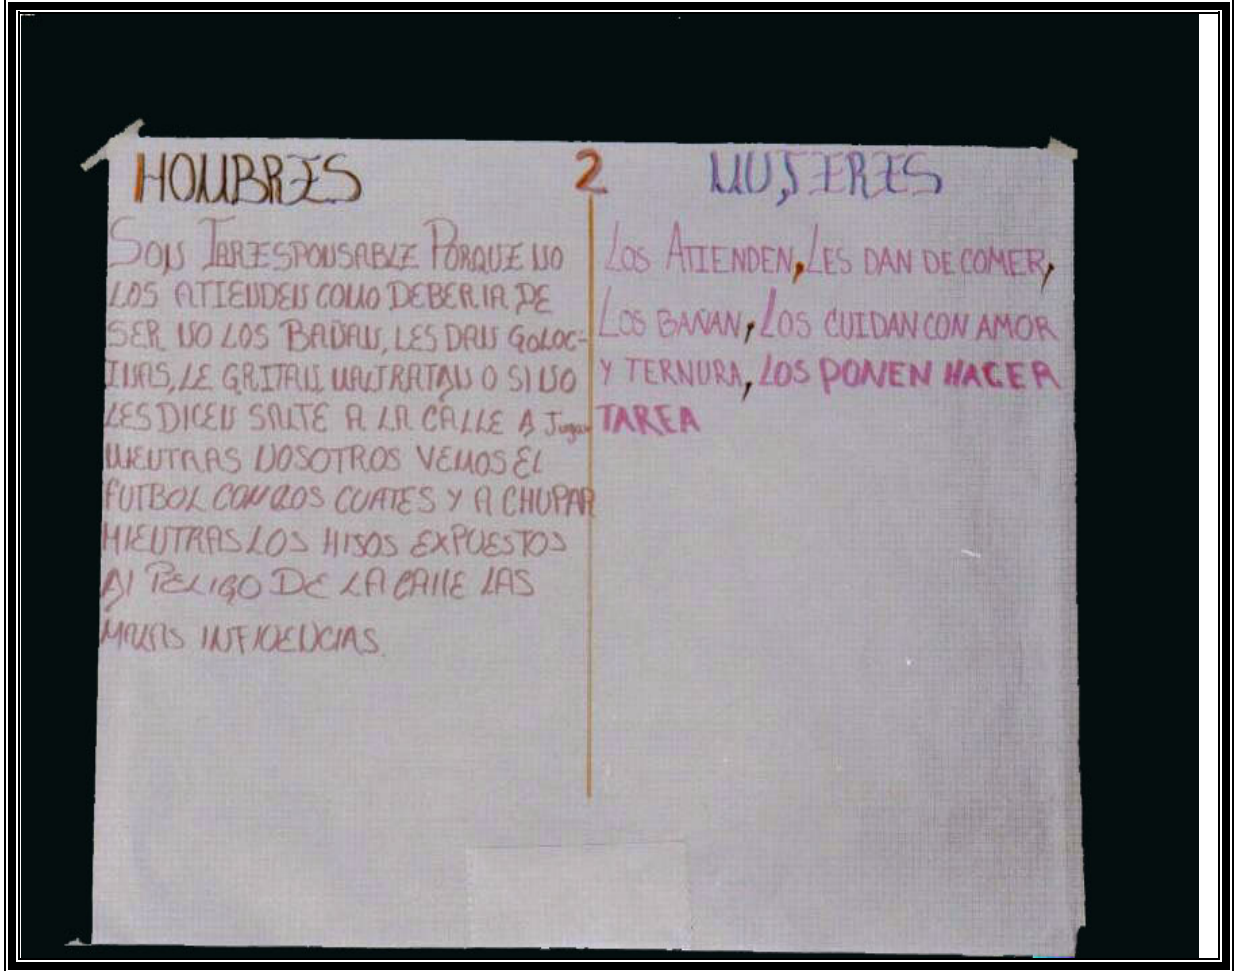 HOMBRES 2 MUJERES
SON IRRESPONSABLE PORQUE NO
LOS ATIENDEN COMO DEBERIA DE
SER NO LOS BAÑAN, LES DAN GOLOC-
INAS, LE GRITAN MALTRATAN O SI NO
LES DICEN SALTE A LA CALLE A Jugar
MIENTRAS NOSOTROS VEMOS EL
FUTBOL CON LOS CUATES Y A CHUPAR
MIENTRAS LOS HIJOS EXPUESTOS
Al PELIGO DE LA CAllE LAS
MALAS INFlUENCIAS.
LOS ATIENDEN, LES DAN DE COMER,
LOS BAÑAN, LOS CUIDAN CON AMOR
Y TERNURA, LOS PONEN HACER
TAREA